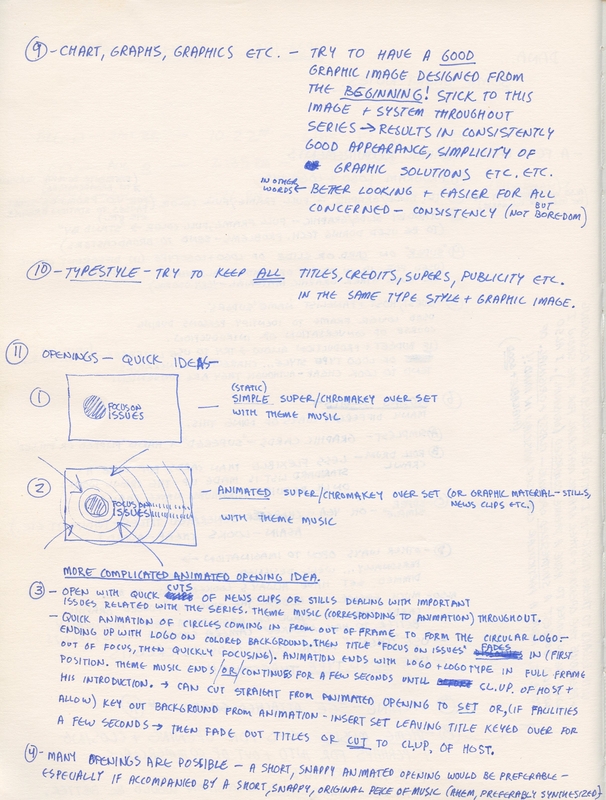 ⑨ - CHART, GRAPHS, GRAPHICS ETC. - TRY TO HAVE A GOOD
GRAPHIC IMAGE DESIGNED FROM
THE BEGINNING! STICK TO THIS
IMAGE + SYSTEM THROUGHOUT
SERIES → RESULTS IN CONSISTENTLY
GOOD APPEARANCE, SIMPLICITY OF
GRAPHIC SOLUTIONS ETC. ETC.
IN OTHER WORDS - BETTER LOOKING + EASIER FOR ALL
CONCERNED - CONSISTENCY (NOT BUT BOREDOM)
⑩ - TYPESTYLE - TRY TO KEEP ALL TITLES, CREDITS, SUPERS, PUBLICITY ETC.
IN THE SAME TYPE STYLE + GRAPHIC IMAGE.
⑪ OPENINGS - QUICK IDEAS -
① FOCUS ON
ISSUES
- (STATIC)
SIMPLE SUPER/CHROMAKEY OVER SET
WITH THEME MUSIC
② FOCUS ON
ISSUES
- ANIMATED SUPER/CHROMAKEY OVER SET (OR GRAPHIC MATERIAL - STILLS,
NEWS CLIPS ETC.)
WITH THEME MUSIC
MORE COMPLICATED ANIMATED OPENING IDEA.
③ - OPEN WITH QUICK CUTS OF NEWS CLIPS OR STILLS DEALING WITH IMPORTANT
ISSUES RELATED WITH THE SERIES. THEME MUSIC (CORRESPONDING TO ANIMATION) THROUGHOUT.
- QUICK ANIMATION OF CIRCLES COMING IN FROM OUT OF FRAME TO FORM THE CIRCULAR LOGO -
ENDING UP WITH LOGO ON COLORED BACKGROUND. THEN TITLE "FOCUS ON ISSUES" FADES IN (FIRST
OUT OF FOCUS, THEN QUICKLY FOCUSING). ANIMATION ENDS WITH LOGO + LOGOTYPE IN FULL FRAME
POSITION. THEME MUSIC ENDS/OR/CONTINUES FOR A FEW SECONDS UNTIL CL.UP. OF HOST +
HIS INTRODUCTION. → CAN CUT STRAIGHT FROM ANIMATED OPENING TO SET OR, (IF FACILITIES
ALLOW) KEY OUT BACKGROUND FROM ANIMATION - INSERT SET LEAVING TITLE KEYED OVER FOR
A FEW SECONDS → THEN FADE OUT TITLES OR CUT TO CLUP, OF HOST.
④ - MANY OPENINGS ARE POSSIBLE - A SHORT, SNAPPY ANIMATED OPENING WOULD BE PREFERABLE -
ESPECIALLY IF ACCOMPANIED BY A SHORT, SNAPPY, ORIGINAL PEICE OF MUSIC (AHEM, PREFERABLY SYNTHESIZED)